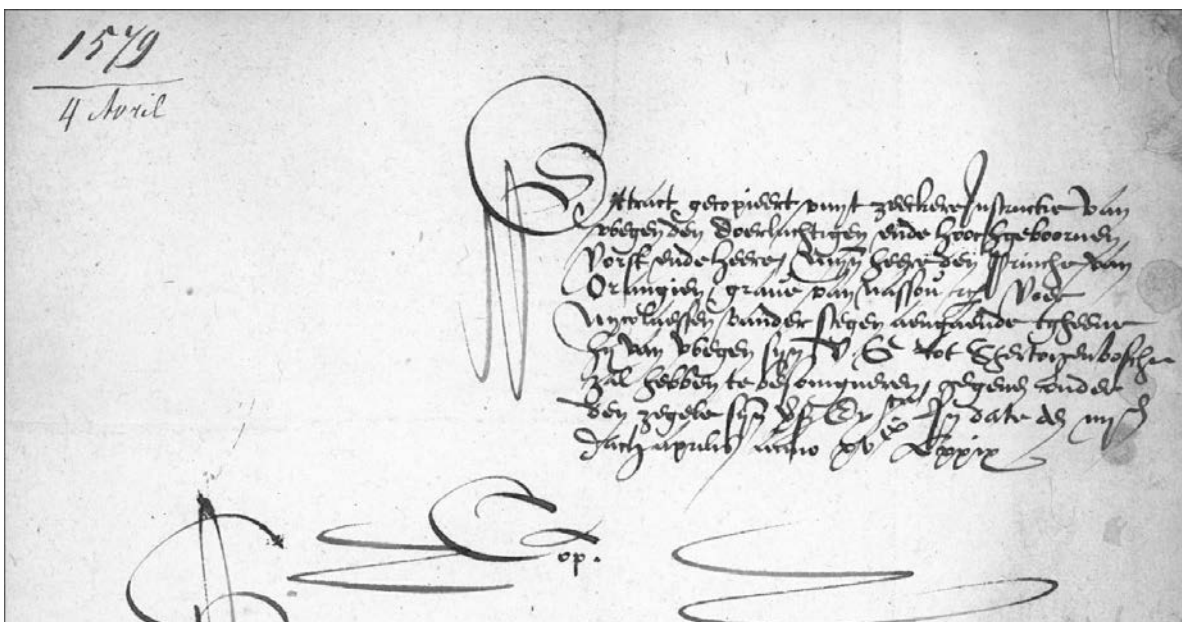 1579
4 Avril
Extract gecopieert vuyt zeeckere Instructie van
wegen den doerluchtigen ende hoochgeboornen
Vorst ende heere, mijn heere den Prinche van
Orangien, grave van Nassou etc. Voer
Nycolaessen vander Stegen aengaende tghene
hy van wegen syn F. G. tot Shertogenbossche
zal hebben te besoingneren, gegeven onder
den zegele syn In date den iiij en
dach aprilis anno xv c Lxxix
Cop.